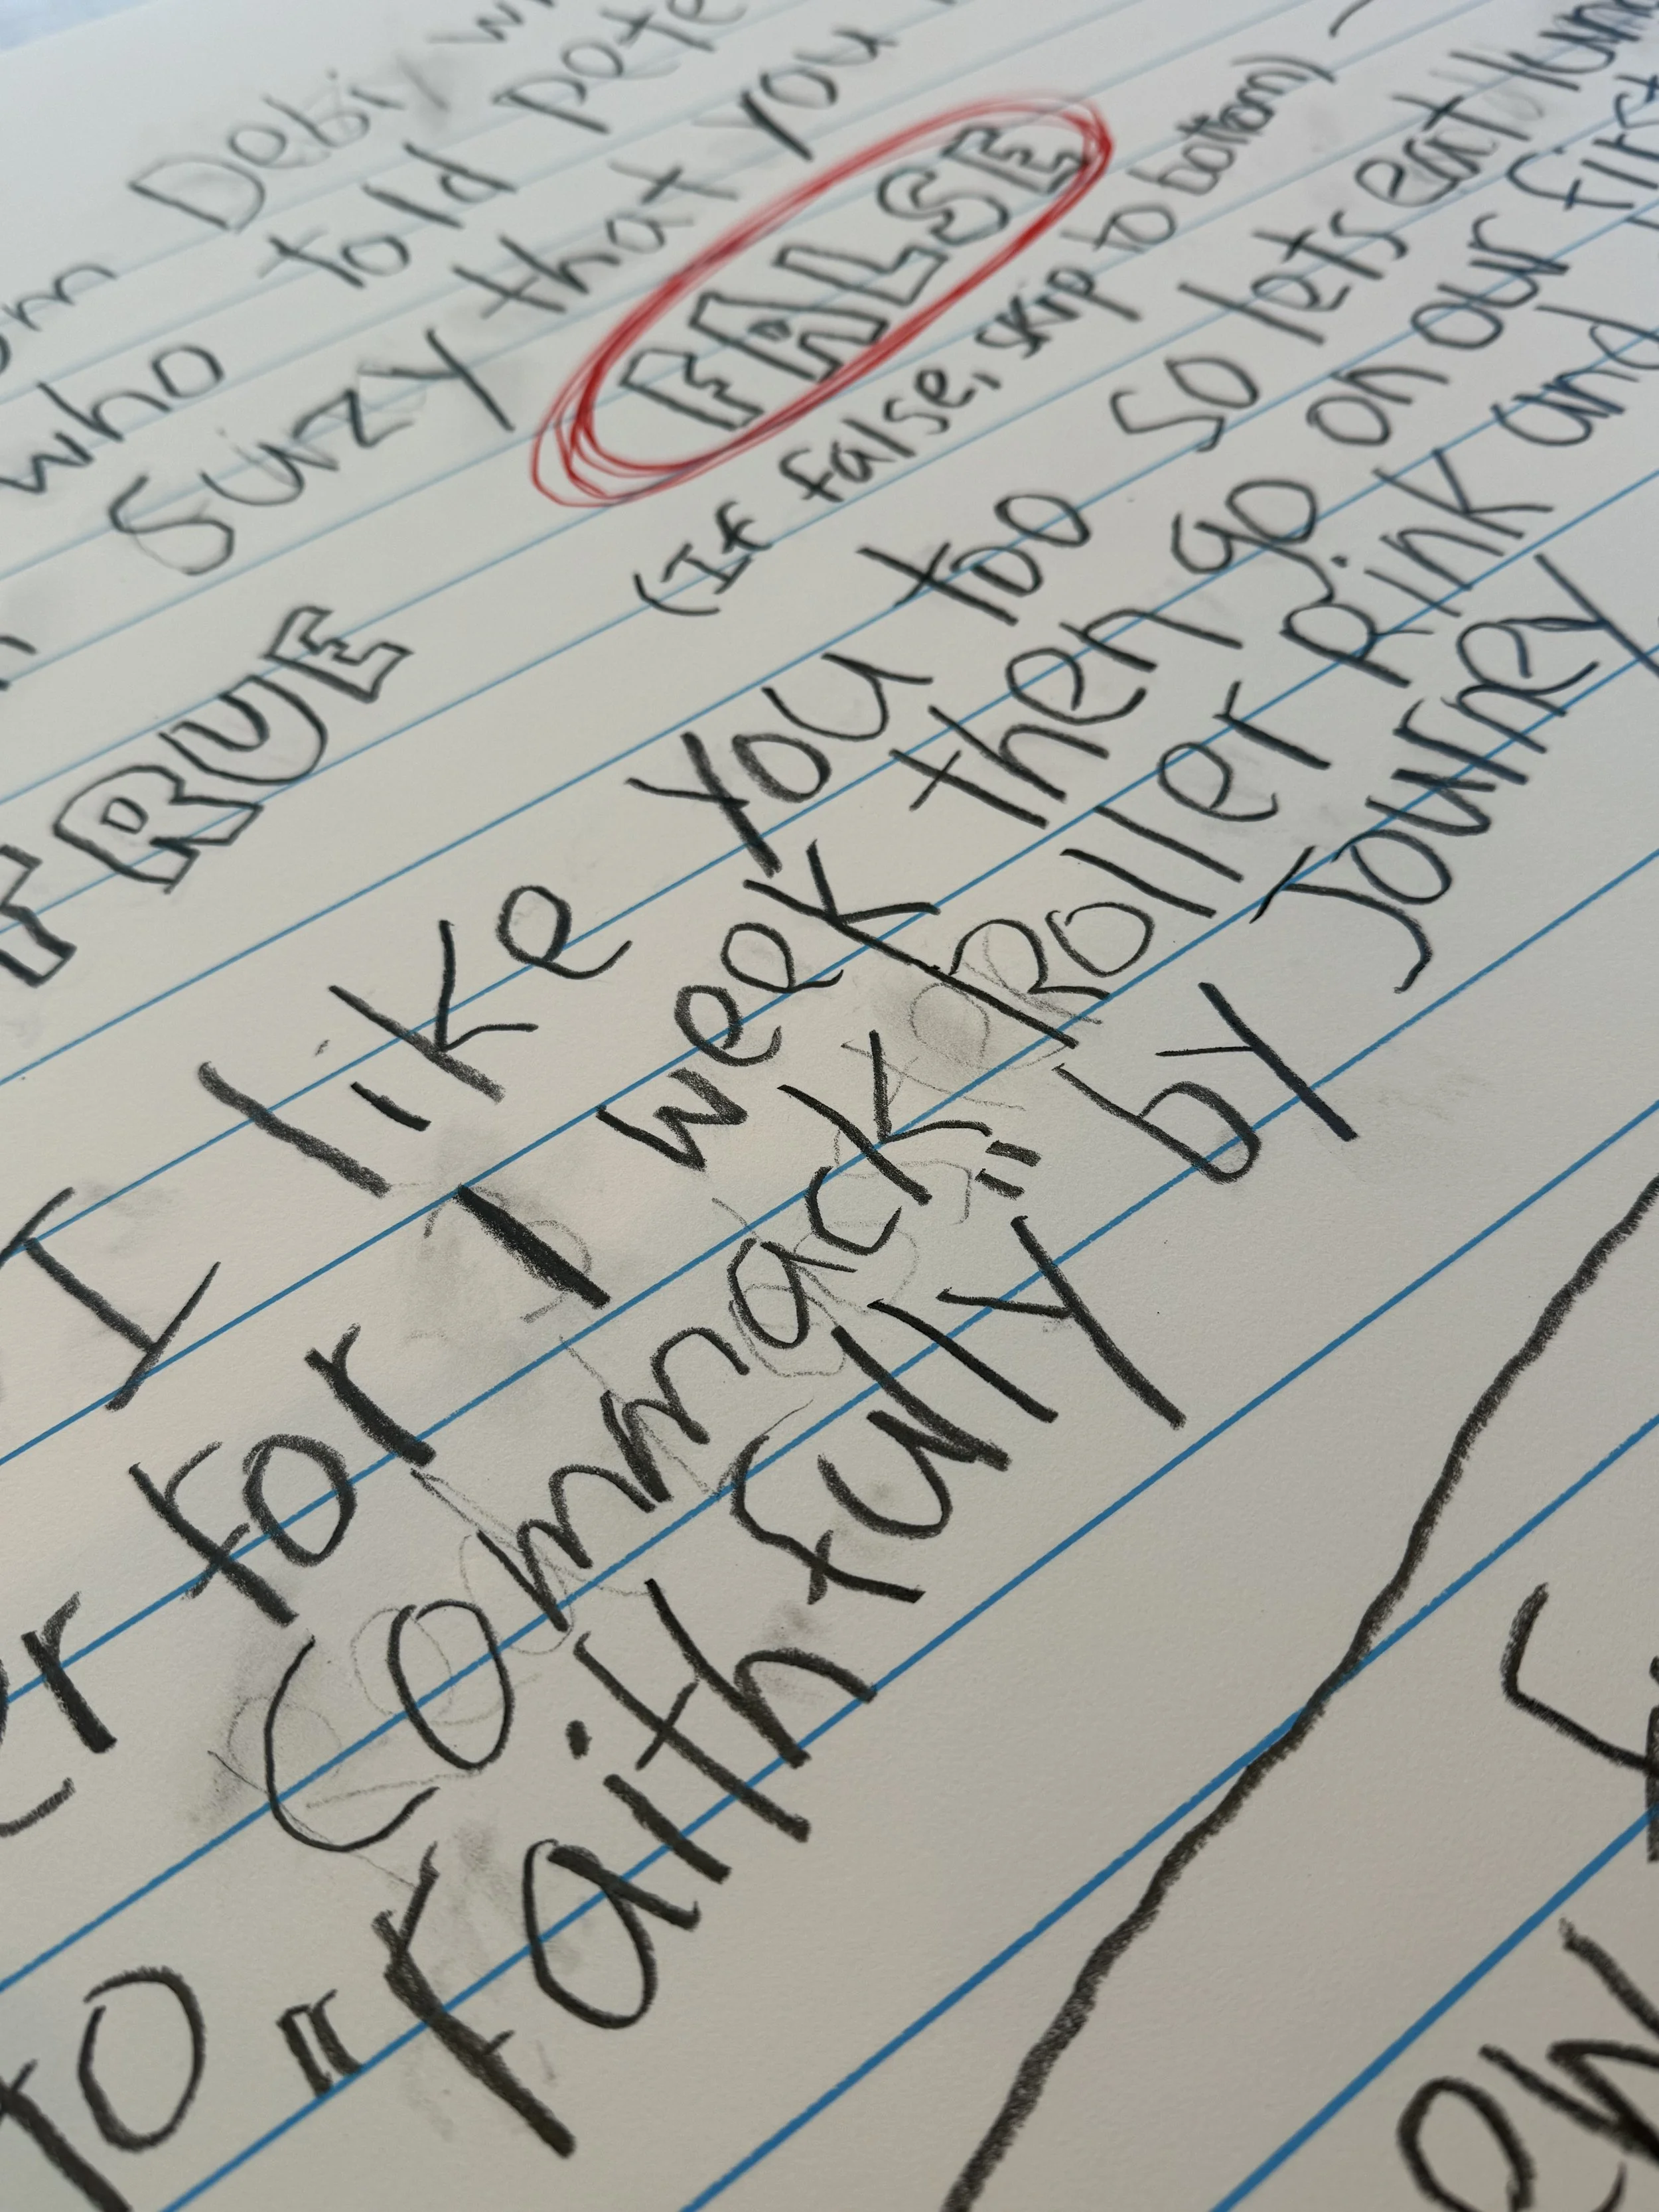 Debi
who told pete
Suzy that you
TRUE FALSE
(If false, skip to bottom)
I like you too so lets eat
for 1 week then go on our first
Commack Roller Rink and
to "Faithfully" by Journey
ew